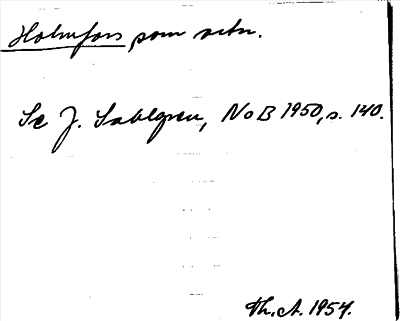 Holmfors som ortn.
Se J. Sahlgren, NoB 1950, s. 140.
Th. A. 1954.